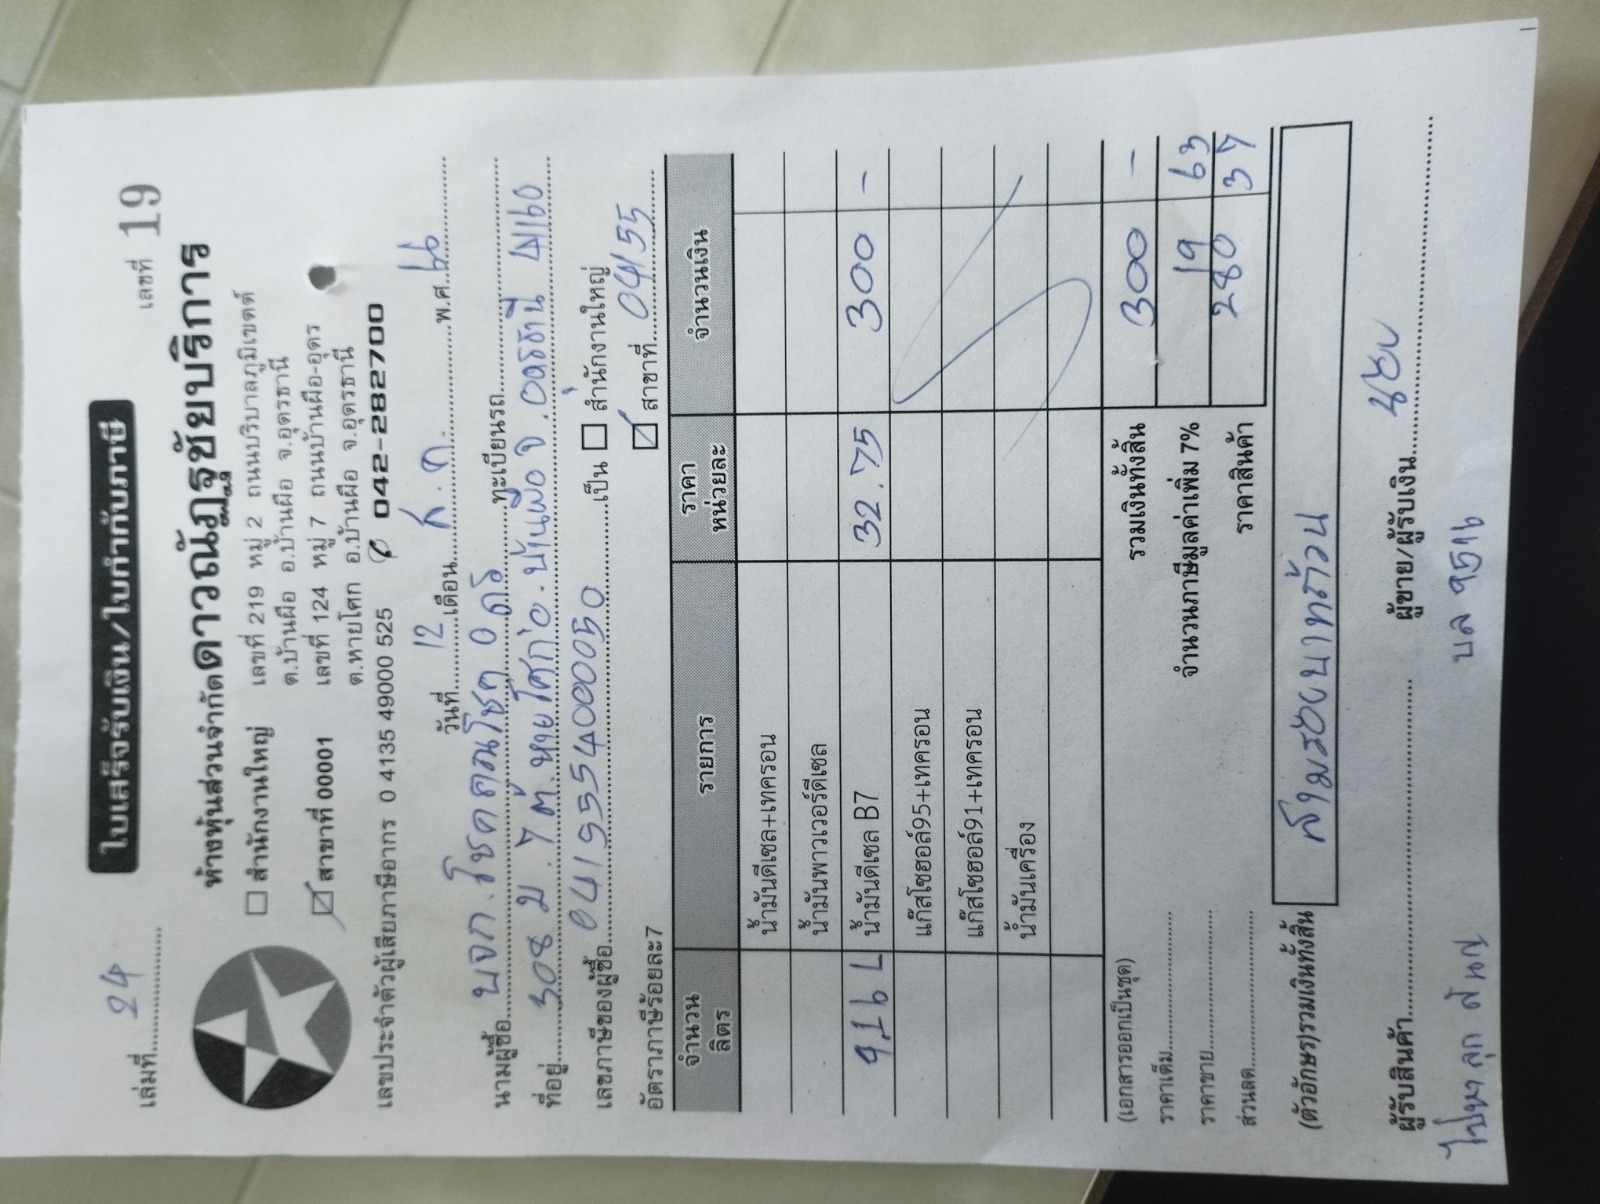 เล่มที่ 24 เลขที่ 19
ใบเสร็จรับเงิน/ใบกำกับภาษี
ห้างหุ้นส่วนจำกัดดาวณัฏฐชัยบริการ
☐ สำนักงานใหญ่ เลขที่ 219 หมู่ 2 ถนนบริบาลภูมิเขตต์
ต.บ้านผือ อ.บ้านผือ จ.อุดรธานี
☑ สาขาที่ 00001 เลขที่ 124 หมู่ 7 ถนนบ้านผือ-อุดร
ต.หายโศก อ.บ้านผือ จ.อุดรธานี
เลขประจำตัวผู้เสียภาษีอากร 0 4135 49000 525 042-2882700
วันที่ 12 เดือน ต.ค. พ.ศ. 66
นามผู้ซื้อ บจก. โชคคณโชค อุดร ทะเบียนรถ
ที่อยู่ 308 ม.7 ต.หายโศก อ.บ้านผือ จ.อุดรธานี 41160
เลขภาษีของผู้ซื้อ 0415554000050 เป็น ☐ สำนักงานใหญ่
อัตราภาษีร้อยละ7 ☑ สาขาที่ 04155
จำนวน ลิตร รายการ ราคา หน่วยละ จำนวนเงิน
น้ำมันดีเซล+เทครอน
น้ำมันพาวเวอร์ดีเซล
9.16 L น้ำมันดีเซล B7 32.75 300 -
แก๊สโซฮอล์95+เทครอน
แก๊สโซฮอล์91+เทครอน
น้ำมันเครื่อง
(เอกสารออกเป็นชุด) รวมเงินทั้งสิ้น 300 -
ราคาเต็ม จำนวนภาษีมูลค่าเพิ่ม 7% 19 63
ราคาขาย ราคาสินค้า 280 37
ส่วนลด
(ตัวอักษร)รวมเงินทั้งสิ้น สามร้อยบาทถ้วน
ผู้รับสินค้า ผู้ขาย/ผู้รับเงิน
บล 9516